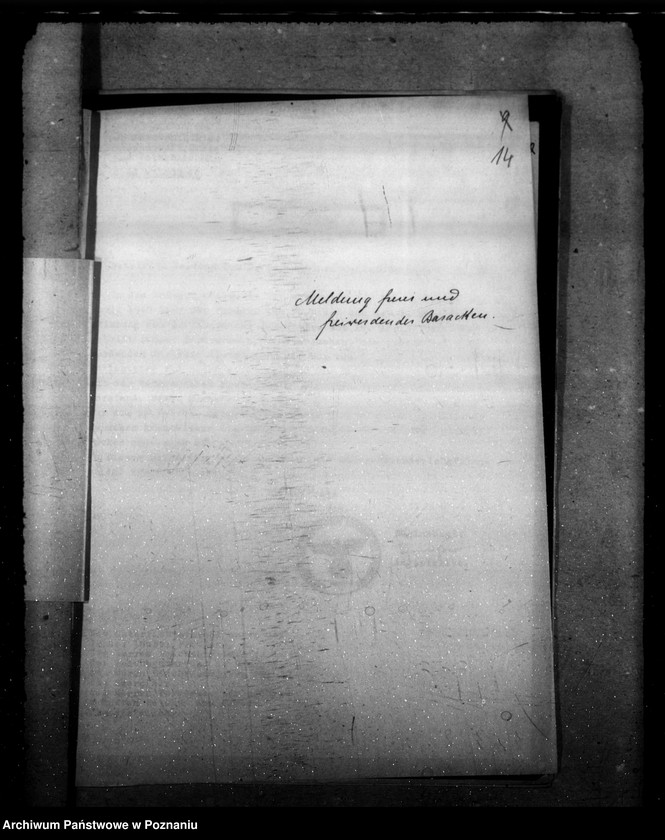 9
14
Meldung freier und
freiwerdender Baracken.
Archiwum Państwowe w Poznaniu